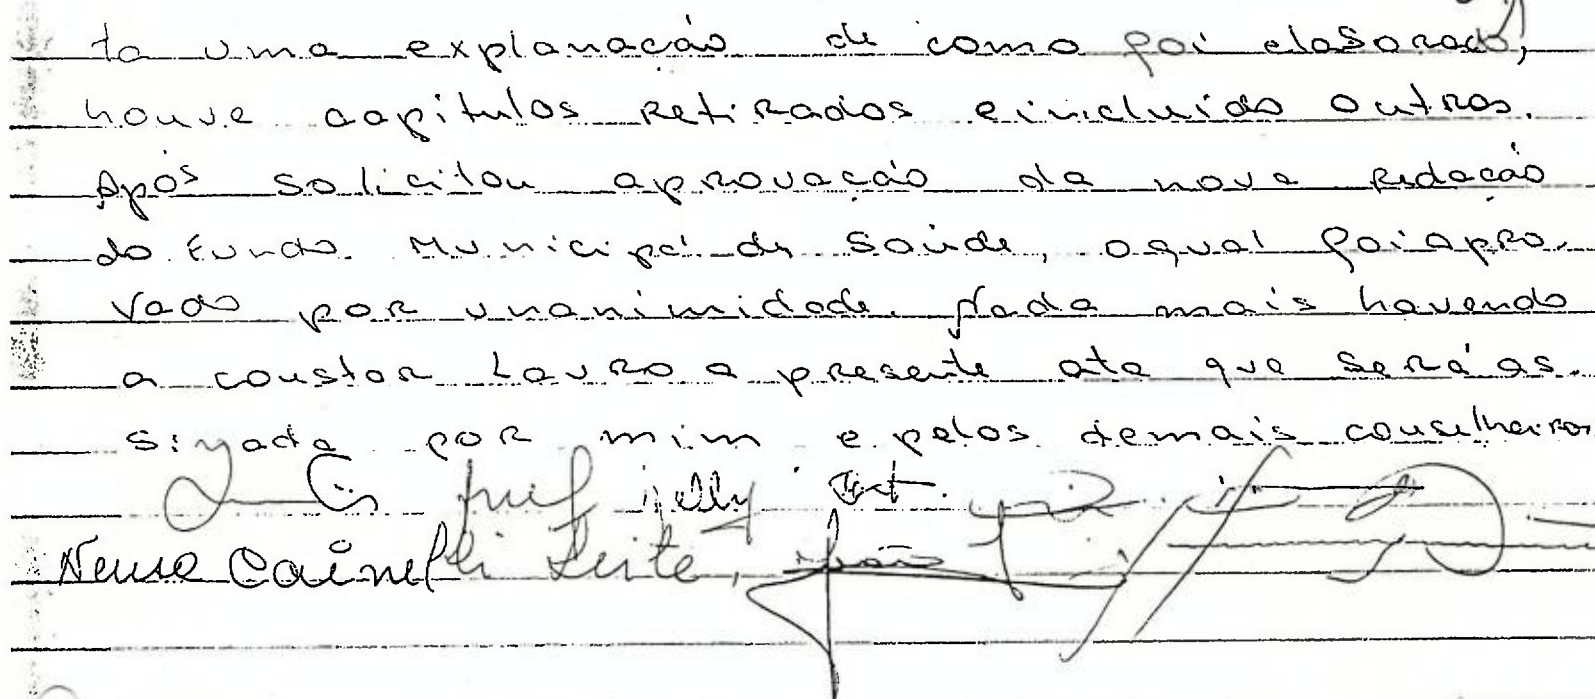 ta uma explanação de como foi elaborado,
houve capítulos retirados e incluido outros.
Após solicitou aprovação da nova redação
do Fundo Municipal de Saúde, o qual foi apro-
vado por unanimidade. Nada mais havendo
a constar Lavro a presente ata que será as-
sinada por mim e pelos demais conselheiros
Neusa Cainelli Leite,